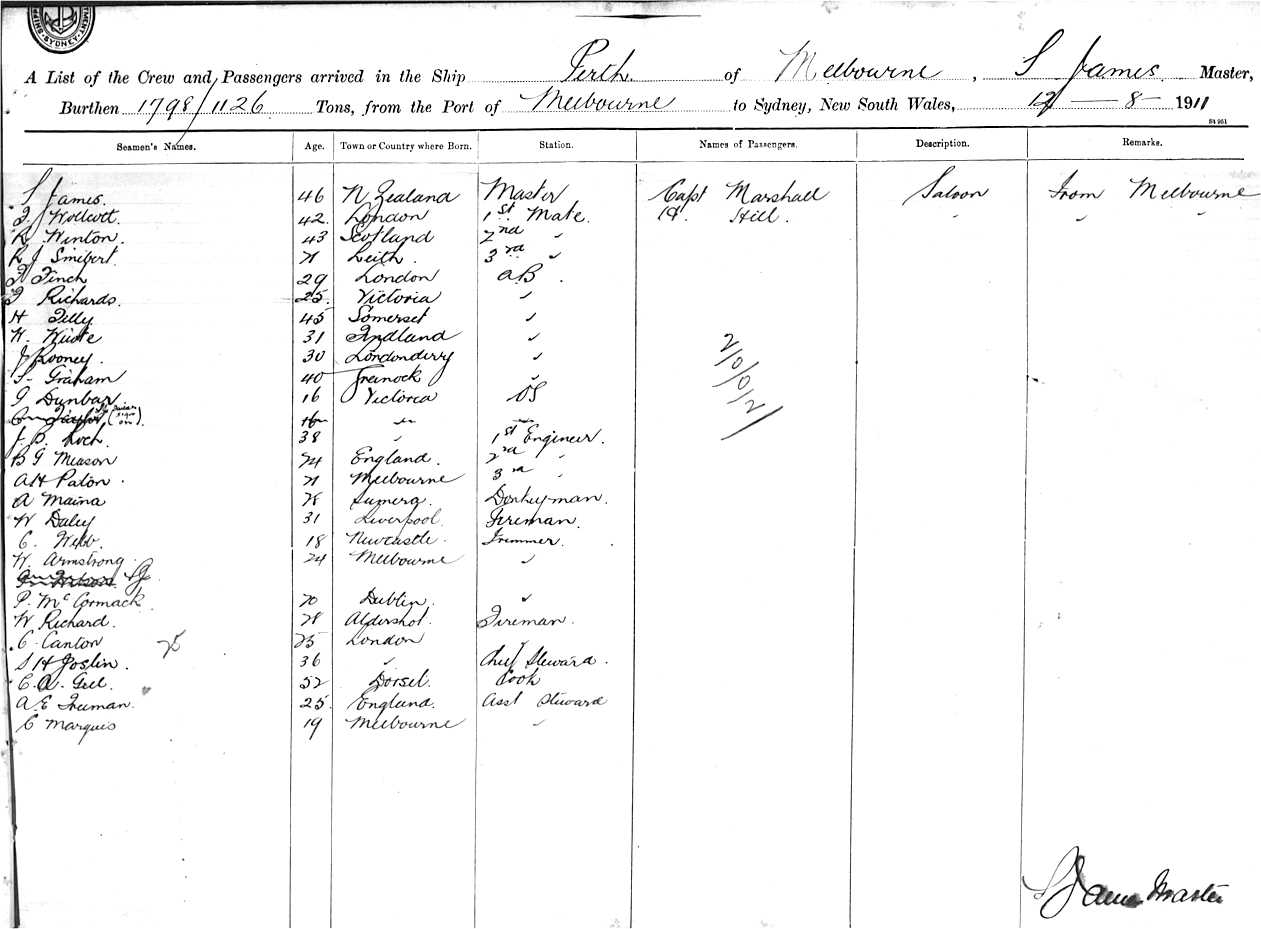 SYDNEY
A List of the Crew and Passengers arrived in the Ship Perth of Melbourne, S James Master,
Burthen 1798/1126 Tons, from the Port of Melbourne to Sydney, New South Wales, 12 - 8 - 1911
St 951
Seamen's Names. Age. Town or Country where Born. Station. Names of Passengers. Description. Remarks.
S James. 46 N Zealand Master Capt Marshall Saloon From Melbourne
42 London 1st Mate. H. Hill. " " "
R Winton. 43 Scotland 2nd "
R J Smibert. 21 Leith. 3rd "
Finch 29 London AB.
Richards. 25. Victoria "
H Tilly 45 Somerset "
W. White 31 "
J Rooney. 30 Londonderry "
Graham 40 Greenock "
Dunbar 16 Victoria OS
16 " "
J. B. Loch. 38 " 1st Engineer.
B G Meason 24 England. 2nd "
A H Paton. 21 Melbourne 3rd "
A Maina 28 Donkeyman.
W Daley 31 Liverpool. Fireman.
C. Webb. 18 Newcastle. Trimmer.
W. Armstrong. 24 Melbourne "
P. McCormack 20 Dublin. "
W Richard. 28 Aldershot. Fireman.
C. Canton 25 London "
S H Joslin. 36 " Chief Steward.
C. A. Gell. 52 Dorset. Cook
A. E Freeman. 25. England. Asst Steward
C Marquis 19 Melbourne "
2/0/0/2/
25
S James Master